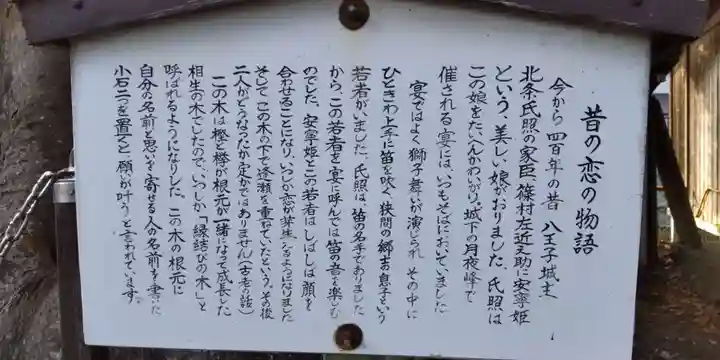 昔の恋の物語
今から四百年の昔 八王子城主
北条氏照の家臣、篠村左近之助に安寧姫
という、美しい娘がおりました。氏照は
この娘をたいへんかわいがり。城下の月夜峰で
催される宴には、いつもそばにおいていました
宴ではよく獅子舞いが演じられ その中に
ひときわ上手に笛を吹く、狭間の郷士の息子という
若者がいました、氏照は、笛の名手でありました
から、この若者を宴に呼んでは笛の音を楽しむ
のでした、安寧姫とこの若者はしばしば顔を
合わせることになり、いつしか恋が芽生えるようになりました
そしてこの木の下で逢瀬を重ねていたという。その後
二人がどうなったか定かではありません(古老の話)
この木は樫と欅が根元が一緒になって成長した
相生の木でしたので、いつしか「縁結びの木」と
呼ばれるようになりました この木の根元に
自分の名前と思いを寄せる人の名前を書いた
小石二つを置くと、願いが叶うと言われています。